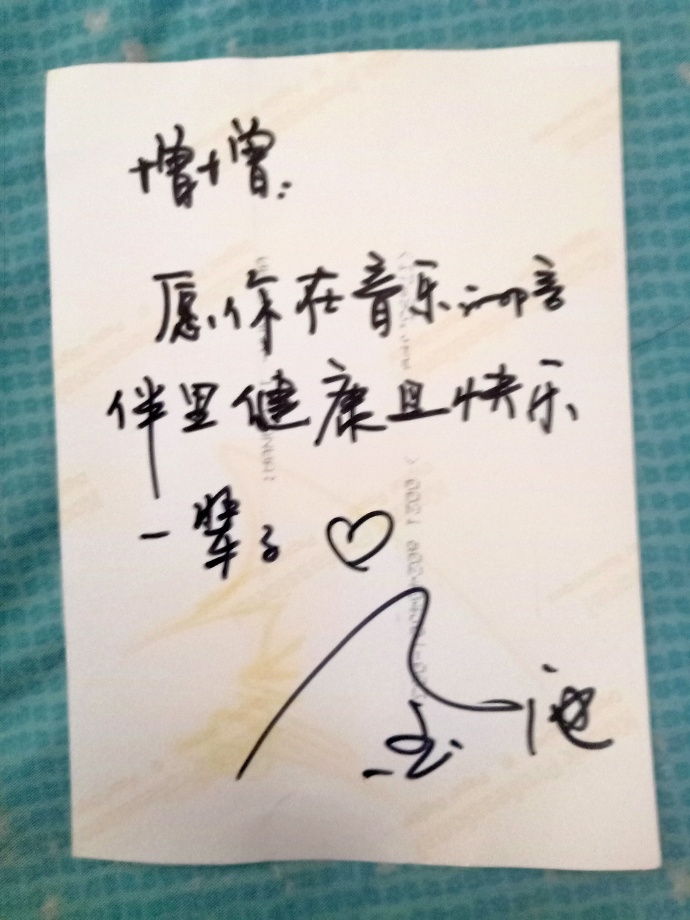 增增:
愿你在音乐的陪
伴里健康且快乐
一辈子♡